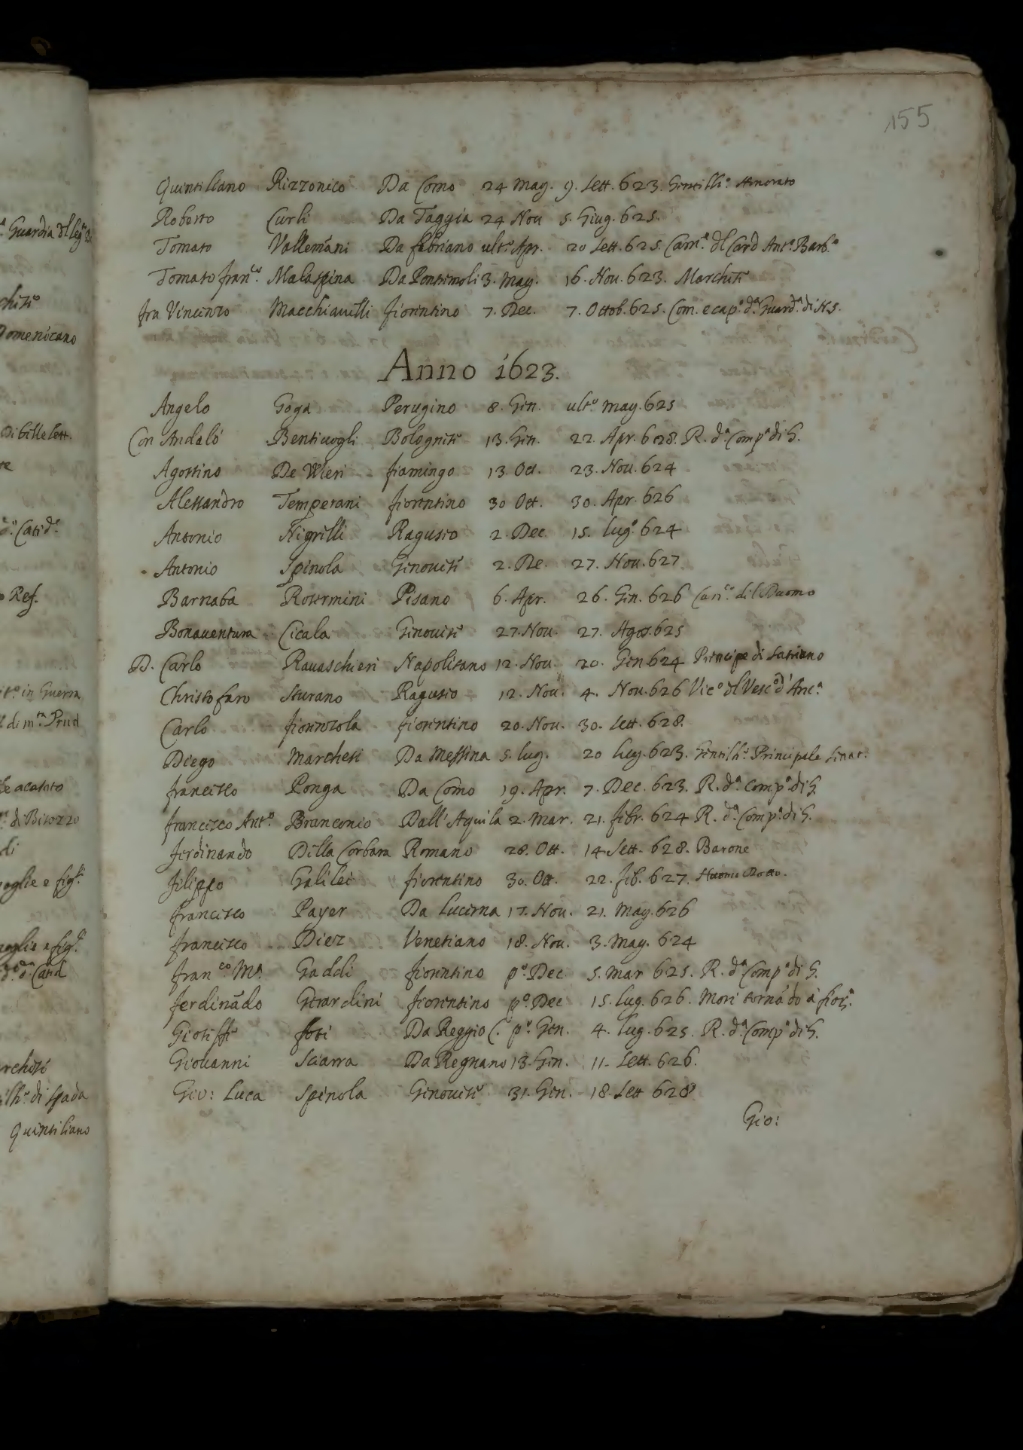 155
Quintiliano Rezzonico Da Como 24 Mag. 9. Sett. 623. Gentilh.º
Roberto Curli Da Taggia 24 Nov 5. Giug. 625.
Tomaso Vallemani Da fabriano ult.º Apr. 20 Sett. 625. Cam.º del Card Ant.º Barb.º
Tomaso fran.co Malaspina Da Pontremoli 3. May. 16. Nov. 623. Marchese
fra Vincenzo Macchiavelli fiorentino 7. Dec. 7. Ottob. 625. Com. e cap.º d.ª Guard.ª di N.S.
Anno 1623.
Angelo Goga Perugino 8. Gen. ult.º may. 625
Con Andalò Bentivogli Bolognese 13. Gen. 22. Apr. 628. R. d.ª Comp.ª di G.
Agostino De Meri fiamingo 13 Ott. 23. Nov. 624
Alessandro Temperani fiorentino 30 Ott. 30. Apr. 626
Antonio Nigrelli Raguseo 2. Dec 15. Lug.º 624
Antonio Spinola Genovese 2. De 27. Nov. 627
Barnaba Rosermini Pisano 6. Apr. 26. Gen. 626 Can.co del Duomo
Bonaventura Cicala Genovese 27. Nov. 27. Agos. 625
D. Carlo Ravaschieri Napolitano 12. Nov. 20. Gen 624 Principe di Satriano
Christofaro Sturano Raguseo 12. Nov. 4. Nov. 626 Vic.º del Vesc.º d'Anc.ª
Carlo fiorenzola fiorentino 20. Nov. 30. Sett. 628.
Diego Marchesi Da Messina 5. lug. 20 lug. 623. Gentilh.º Principale
francesco Ponga Da Como 19. Apr. 7. Dec. 623. R. d.ª Comp.ª di G.
francesco Ant.º Branconio Dall'Aquila 2. Mar. 21. febr. 624 R. d.ª Comp.ª di G.
ferdinando Della Corbara Romano 28. Ott. 14 Sett. 628. Barone
filippo Galilei fiorentino 30. Ott. 22. feb. 627.
francesco Payer Da Lucerna 17. Nov. 21. May. 626
francesco Diez Venetiano 18. Nov. 3. May. 624
fran.co M.ª Gaddi fiorentino p.º Dec 5. Mar 625. R. d.ª Comp.ª di G.
ferdinādo Gerardini fiorentino p.º Dec 15. lug. 626. Mori tornādo à fior.ª
Gioseffe foti Da Reggio C. p.º Gen. 4. lug. 625 R. d.ª Comp.ª di G.
Giovanni Sciarra Da Regnano 13. Gen. 11. Sett. 626.
Gio: Luca Spinola Genovese 31. Gen. 18 Sett 628
Gio: